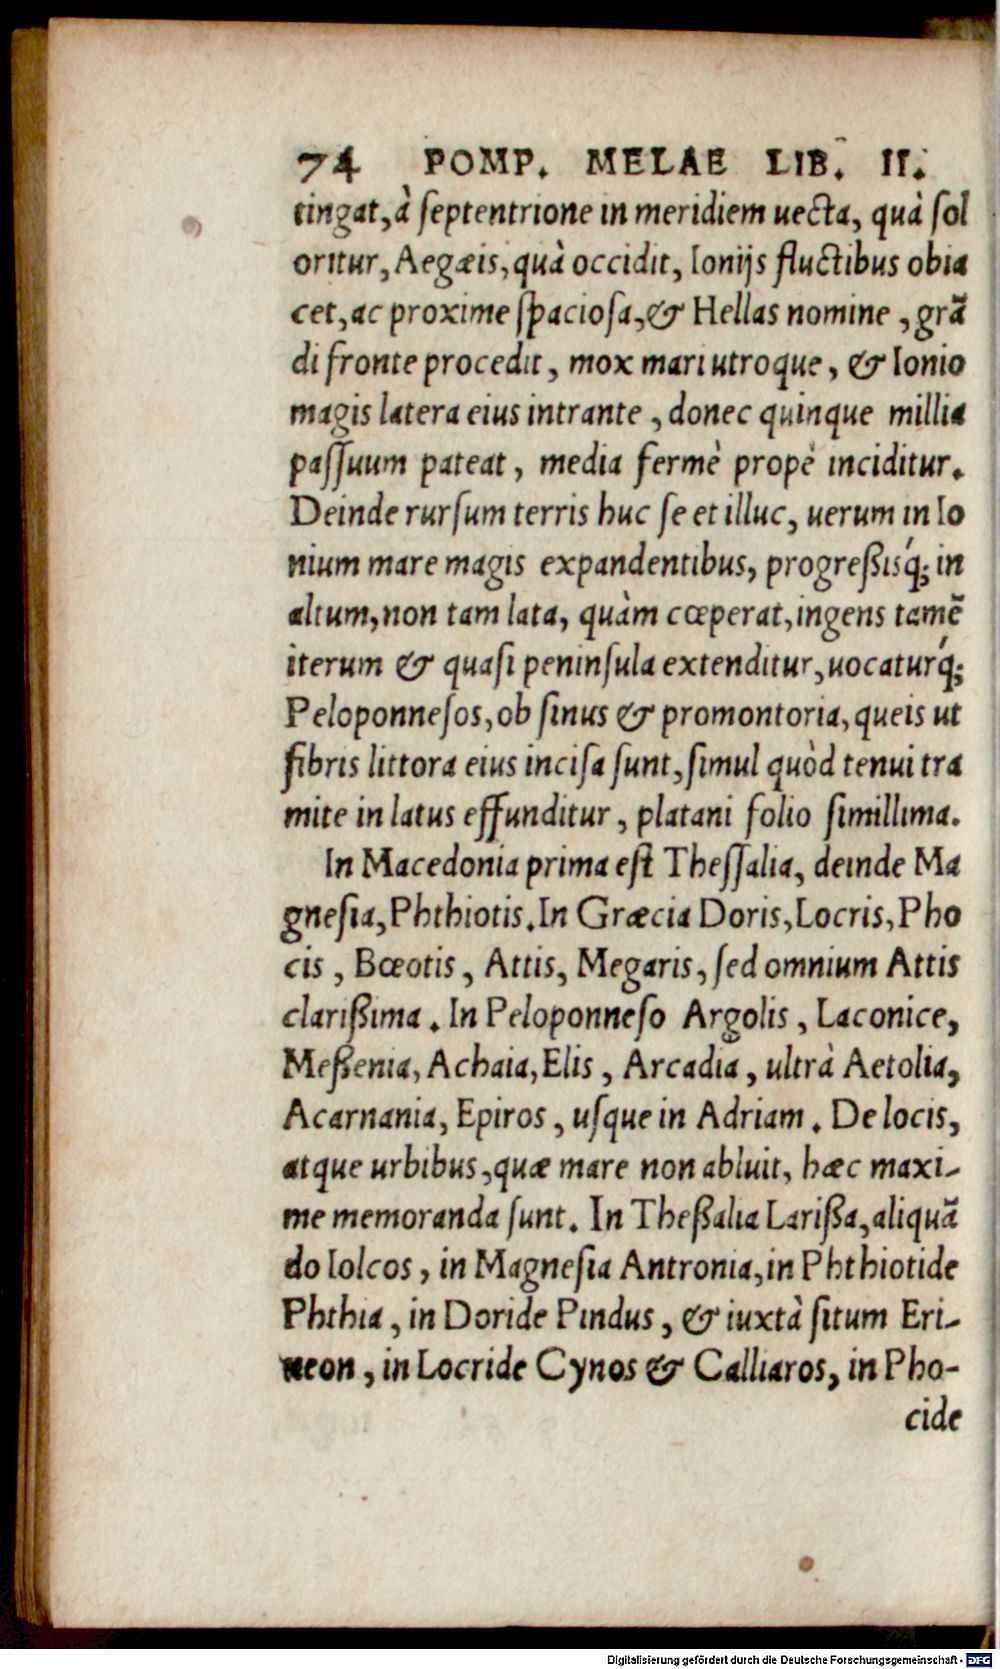 74 POMP. MELAE LIB. II.
tingat, à ſeptentrione in meridiem uecta, quà ſol
oritur, Aegæis, quà occidit, Ionijs fluctibus obia
cet, ac proxime ſpacioſa, & Hellas nomine, grã
di fronte procedit, mox mari utroque, & Ionio
magis latera eius intrante, donec quinque millia
paſſuum pateat, media fermè propè inciditur.
Deinde rurſum terris huc ſe et illuc, uerum in Io
nium mare magis expandentibus, progreßisq́; in
altum, non tam lata, quàm cœperat, ingens tamẽ
iterum & quaſi peninſula extenditur, uocaturq́;
Peloponneſos, ob ſinus & promontoria, queis ut
fibris littora eius inciſa ſunt, ſimul quòd tenui tra
mite in latus effunditur, platani folio ſimillima.
In Macedonia prima eſt Theſſalia, deinde Ma
gneſia, Phthiotis. In Græcia Doris, Locris, Pho
cis, Bœotis, Attis, Megaris, ſed omnium Attis
clarißima. In Peloponneſo Argolis, Laconice,
Meßenia, Achaia, Elis, Arcadia, ultrà Aetolia,
Acarnania, Epiros, uſque in Adriam. De locis,
atque urbibus, quæ mare non abluit, hæc maxi-
me memoranda ſunt. In Theßalia Larißa, aliquã
do Iolcos, in Magneſia Antronia, in Phthiotide
Phthia, in Doride Pindus, & iuxtà ſitum Eri-
neon, in Locride Cynos & Calliaros, in Pho-
cide
Digitalisierung gefördert durch die Deutsche Forschungsgemeinschaft - DFG